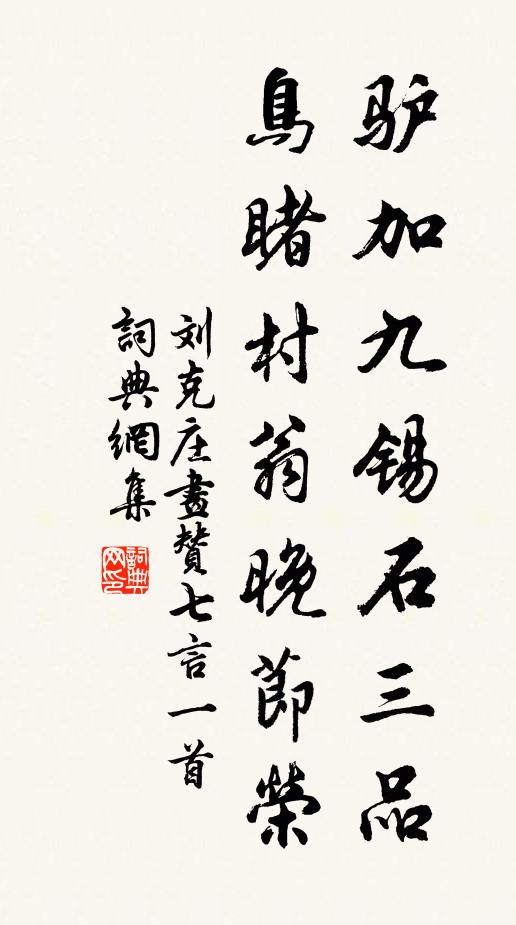 驴加九錫石三品
鳥睹村翁晚節榮
刘克庄畫賛七言一首
詞典網集
詞典网印